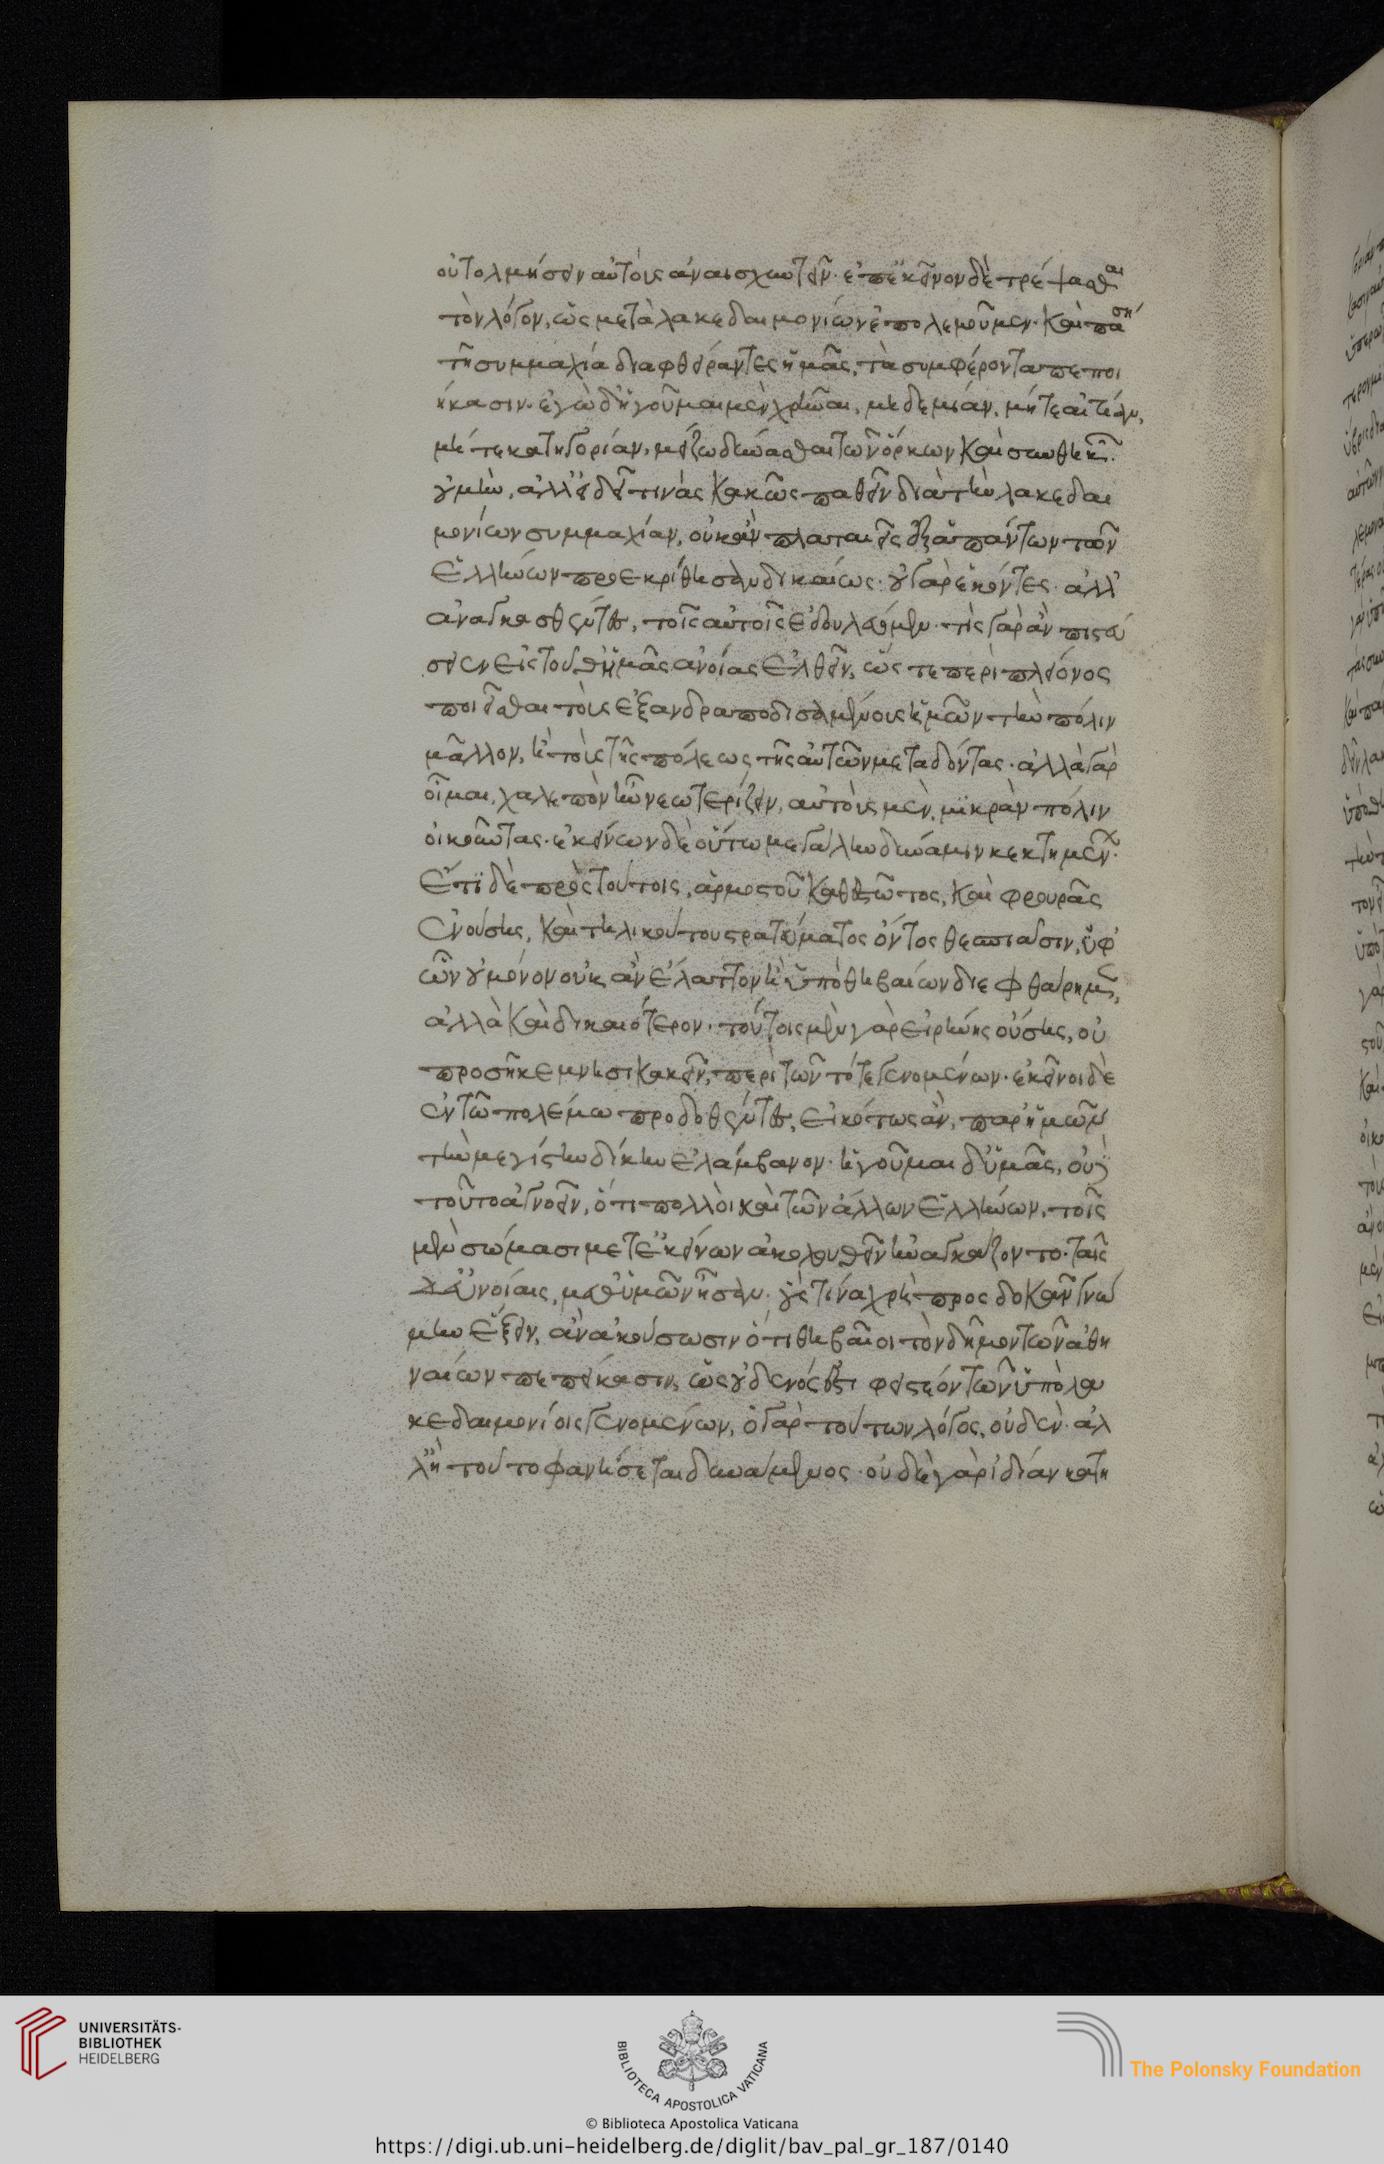 οὐ τολμήσειν αὐτοὺς ἀναισχυντεῖν· ἐπ' ἐκεῖνον δὲ τρέψασθαι
τὸν λόγον, ὡς μετὰ λακεδαιμονίων ἐπολεμοῦμεν. καὶ πάση
τῆ συμμαχία διαφθείραντες ἡμᾶς, τὰ συμφέροντα πεποι
ήκασιν. ἐγὼ δ' ἡγοῦμαι μὲν χρῆναι, μηδεμιάν, μήτε αἰτίαν,
μήτε κατηγορίαν, μείζω δύνασθαι τῶν ὅρκων καὶ συνθηκῶν.
οὐ μὴν, ἀλλ' εἰ δεῖ τινὰς κακῶς παθεῖν διὰ τὴν λακεδαι
μονίων συμμαχίαν, οὐκ ἂν πλαταιεῖς ἐξ ἁπάντων τῶν
Ἑλλήνων προεκρίθησαν δικαίως· οὐ γὰρ ἑκόντες· ἀλλ'
ἀναγκασθέντες, τοῖς αὐτοῖς ἐδουλεύομεν. τίς γὰρ ἂν πιστεύ
σειεν εἰς τοῦθ' ἡμᾶς ἀνοίας ἐλθεῖν, ὥς τε περὶ πλείονος
ποιεῖσθαι τοὺς ἐξανδραποδισαμένους ἡμῶν τὴν πόλιν
μᾶλλον, ἢ τοὺς τῆς πόλεως τῆς αὐτῶν μεταδόντας. ἀλλὰ γὰρ
οἶμαι, χαλεπὸν ἦν νεωτερίζειν, αὐτοὺς μὲν, μικρὰν πόλιν
οἰκοῦντας· ἐκείνων δὲ οὕτω μεγάλην δύναμιν κεκτημένων.
Ἔτι δὲ πρὸς τούτοις, ἁρμοστοῦ καθεστῶτος, καὶ φρουρᾶς
ἐνούσης, καὶ τηλικούτου στρατεύματος ὄντος θεσπιᾶσιν, ὑφ'
ὧν οὐ μόνον οὐκ ἂν ἔλαττον ἢ ὑπὸ θηβαίων διεφθάρημεν,
ἀλλὰ καὶ δικαιότερον. τούτοις μὲν γὰρ εἰρήνης οὔσης, οὐ
προσῆκε μνησικακεῖν, περὶ τῶν τότε γενομένων. ἐκεῖνοι δὲ
ἐν τῶ πολέμω προδοθέντες, εἰκότως ἂν, παρ' ἡμῶν
τὴν μεγίστην δίκην ἐλάμβανον. ἡγοῦμαι δ' ὑμᾶς, οὐδὲ
τοῦτο ἀγνοεῖν, ὅτι πολλοὶ καὶ τῶν ἄλλων Ἑλλήνων, τοῖς
μὲν σώμασι μετ' ἐκείνων ἀκολουθεῖν ἠναγκάζοντο. ταῖς
δ' εὐνοίαις, μεθ' ὑμῶν ἦσαν. οὓς τίνα χρὴ προσδοκᾶν γνώ
μην ἕξειν, ἂν ἀκούσωσιν ὅτι θηβαῖοι τὸν δῆμον τῶν ἀθη
ναίων πεπείκασιν, ὡς οὐδενός ἐστι φειστέον τῶν ὑπὸ λα
κεδαιμονίοις γενομένων, ὁ γὰρ τούτων λόγος, οὐδὲν ἀλ
λ' ἢ τοῦτο φανήσεται δυνάμενος. οὐδὲ γὰρ ἰδίαν κατη
UNIVERSITÄTS-
BIBLIOTHEK
HEIDELBERG
BIBLIOTECA APOSTOLICA VATICANA
The Polonsky Foundation
© Biblioteca Apostolica Vaticana
https://digi.ub.uni-heidelberg.de/diglit/bav_pal_gr_187/0140